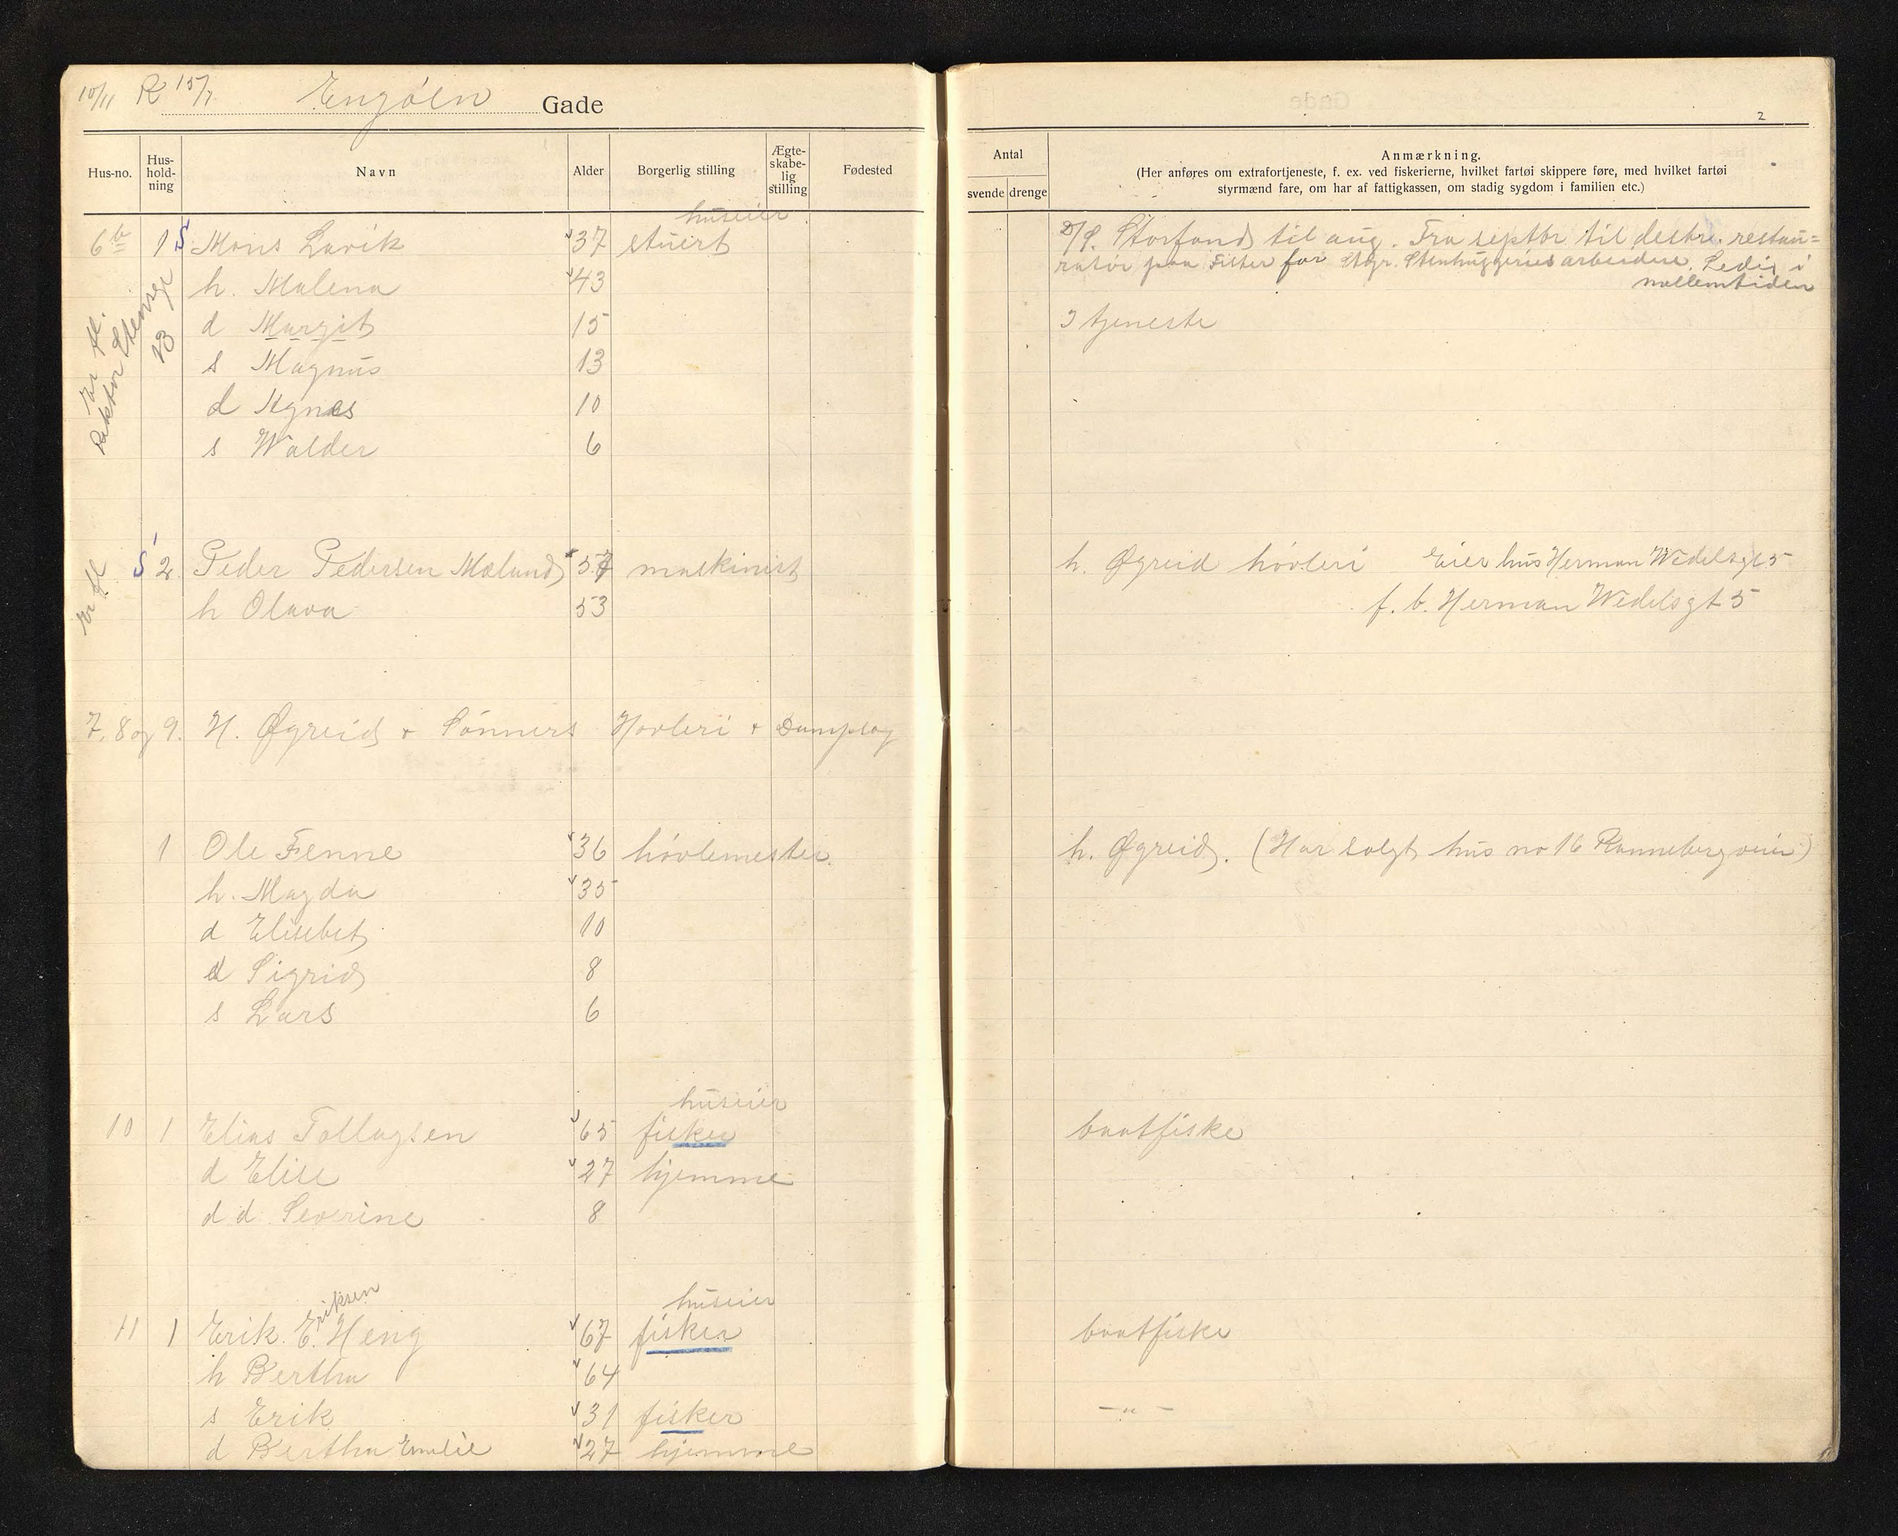 10/11 R 15/7. Engøen Gade
Hus-no. Hus-hold-ning Navn Alder Borgerlig stilling Ægte-skabe-lig stilling Fødested
huseier
6b 1 S Mons Lavik 37 stuert
h. Malena 43
d Margit 15
s Magnus 13
d Agnes 10
s Walder 6
Er fl.
13
S 2 Peder Pedersen Mæland 57 maskinist
h Olava 53
Er fl
7, 8 og 9. H. Øgreid + Sønners Hovleri + Dampsag
1 Ole Fenne 36 høvlemester
h. Magda 35
d Elisebet 10
d Sigrid 8
s Lars 6
huseier
10 1 Elias Tollagsen 65 fisker
d Elise 27 hjemme
d d. Severine 8
huseier
11 1 Erik Eriksen Heng 67 fisker
h Bertha 64
s Erik 31 fisker
d Bertha Emelie 27 hjemme
2
Antal
svende drenge
Anmærkning.
(Her anføres om extrafortjeneste, f. ex. ved fiskerierne, hvilket fartøi skippere føre, med hvilket fartøi
styrmænd fare, om har af fattigkassen, om stadig sygdom i familien etc.)
D/S. Storfond til aug. Fra septbr til destre. restau=
ratør paa Fister for Stgr. Stenhuggeriesarbeidere. Ledig i
mellemtiden
I tjeneste
h. Øgreid høvleri Eier hus Herman Wedelsgt 5
f. b. Herman Wedelsgt 5
h. Øgreid. (Har solgt hus no 16 Rannebergveien)
baatfiske
baatfiske
- " -